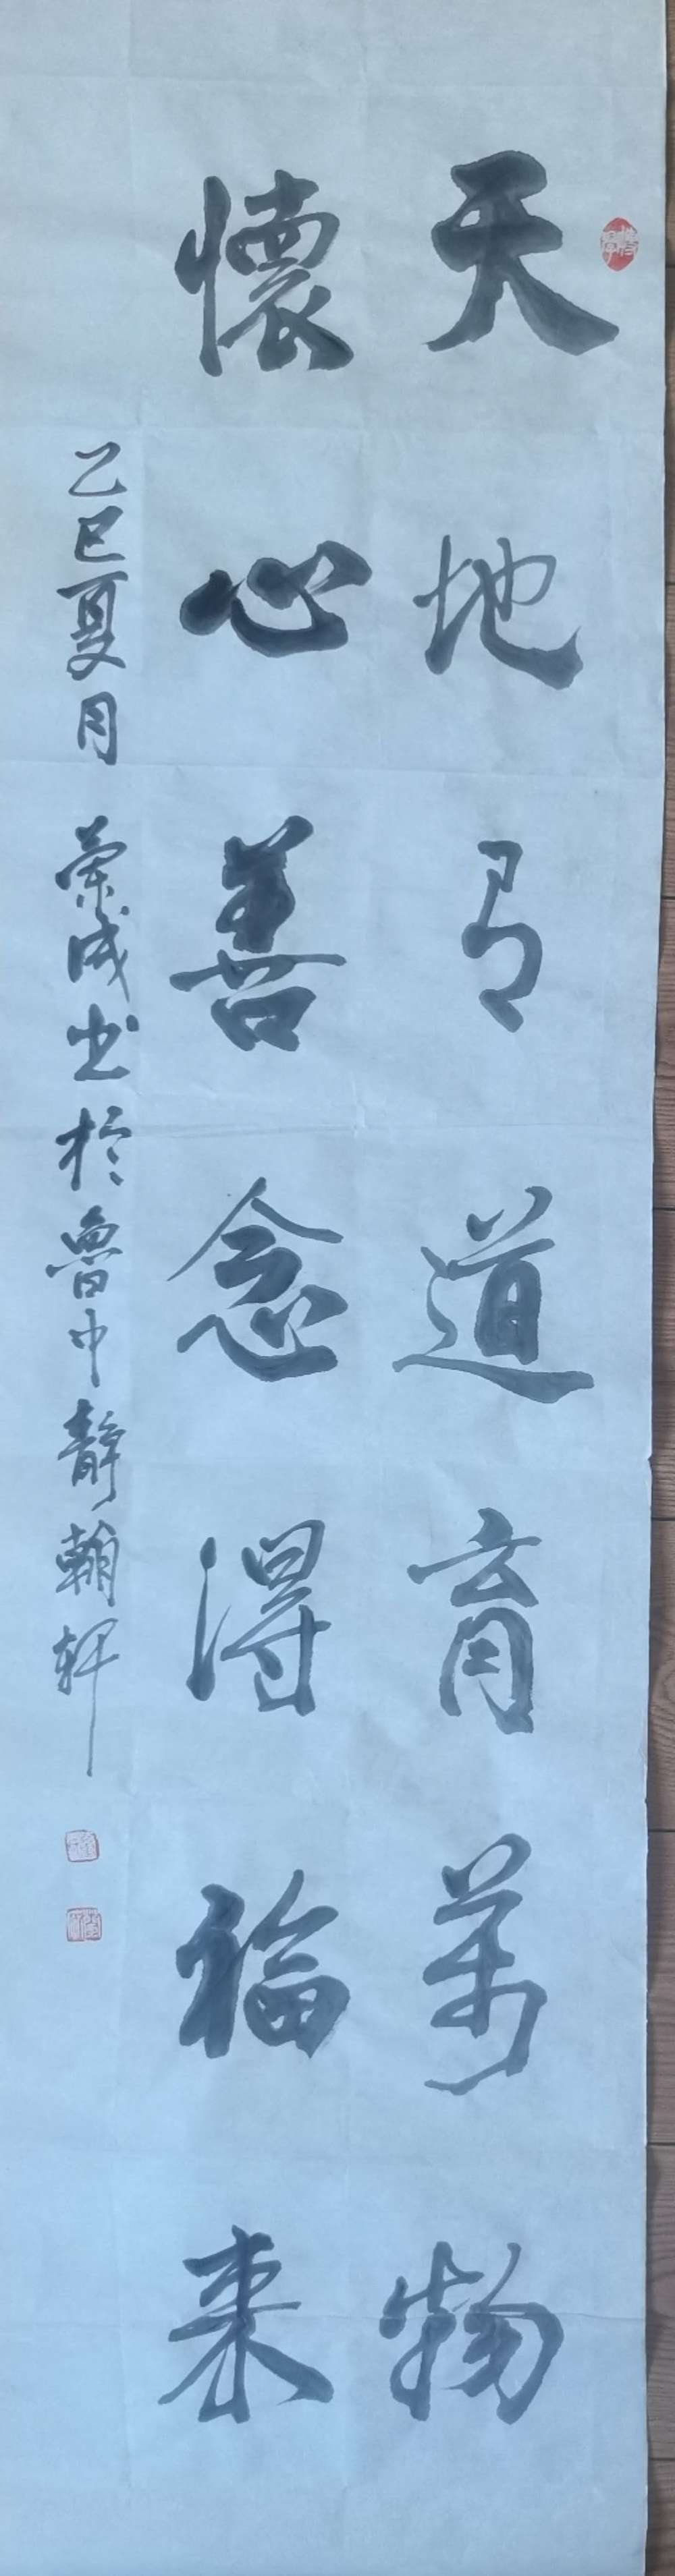 天地有道育萬物
懷心善念得福来
乙巳夏月 榮成书於魯中靜翰軒